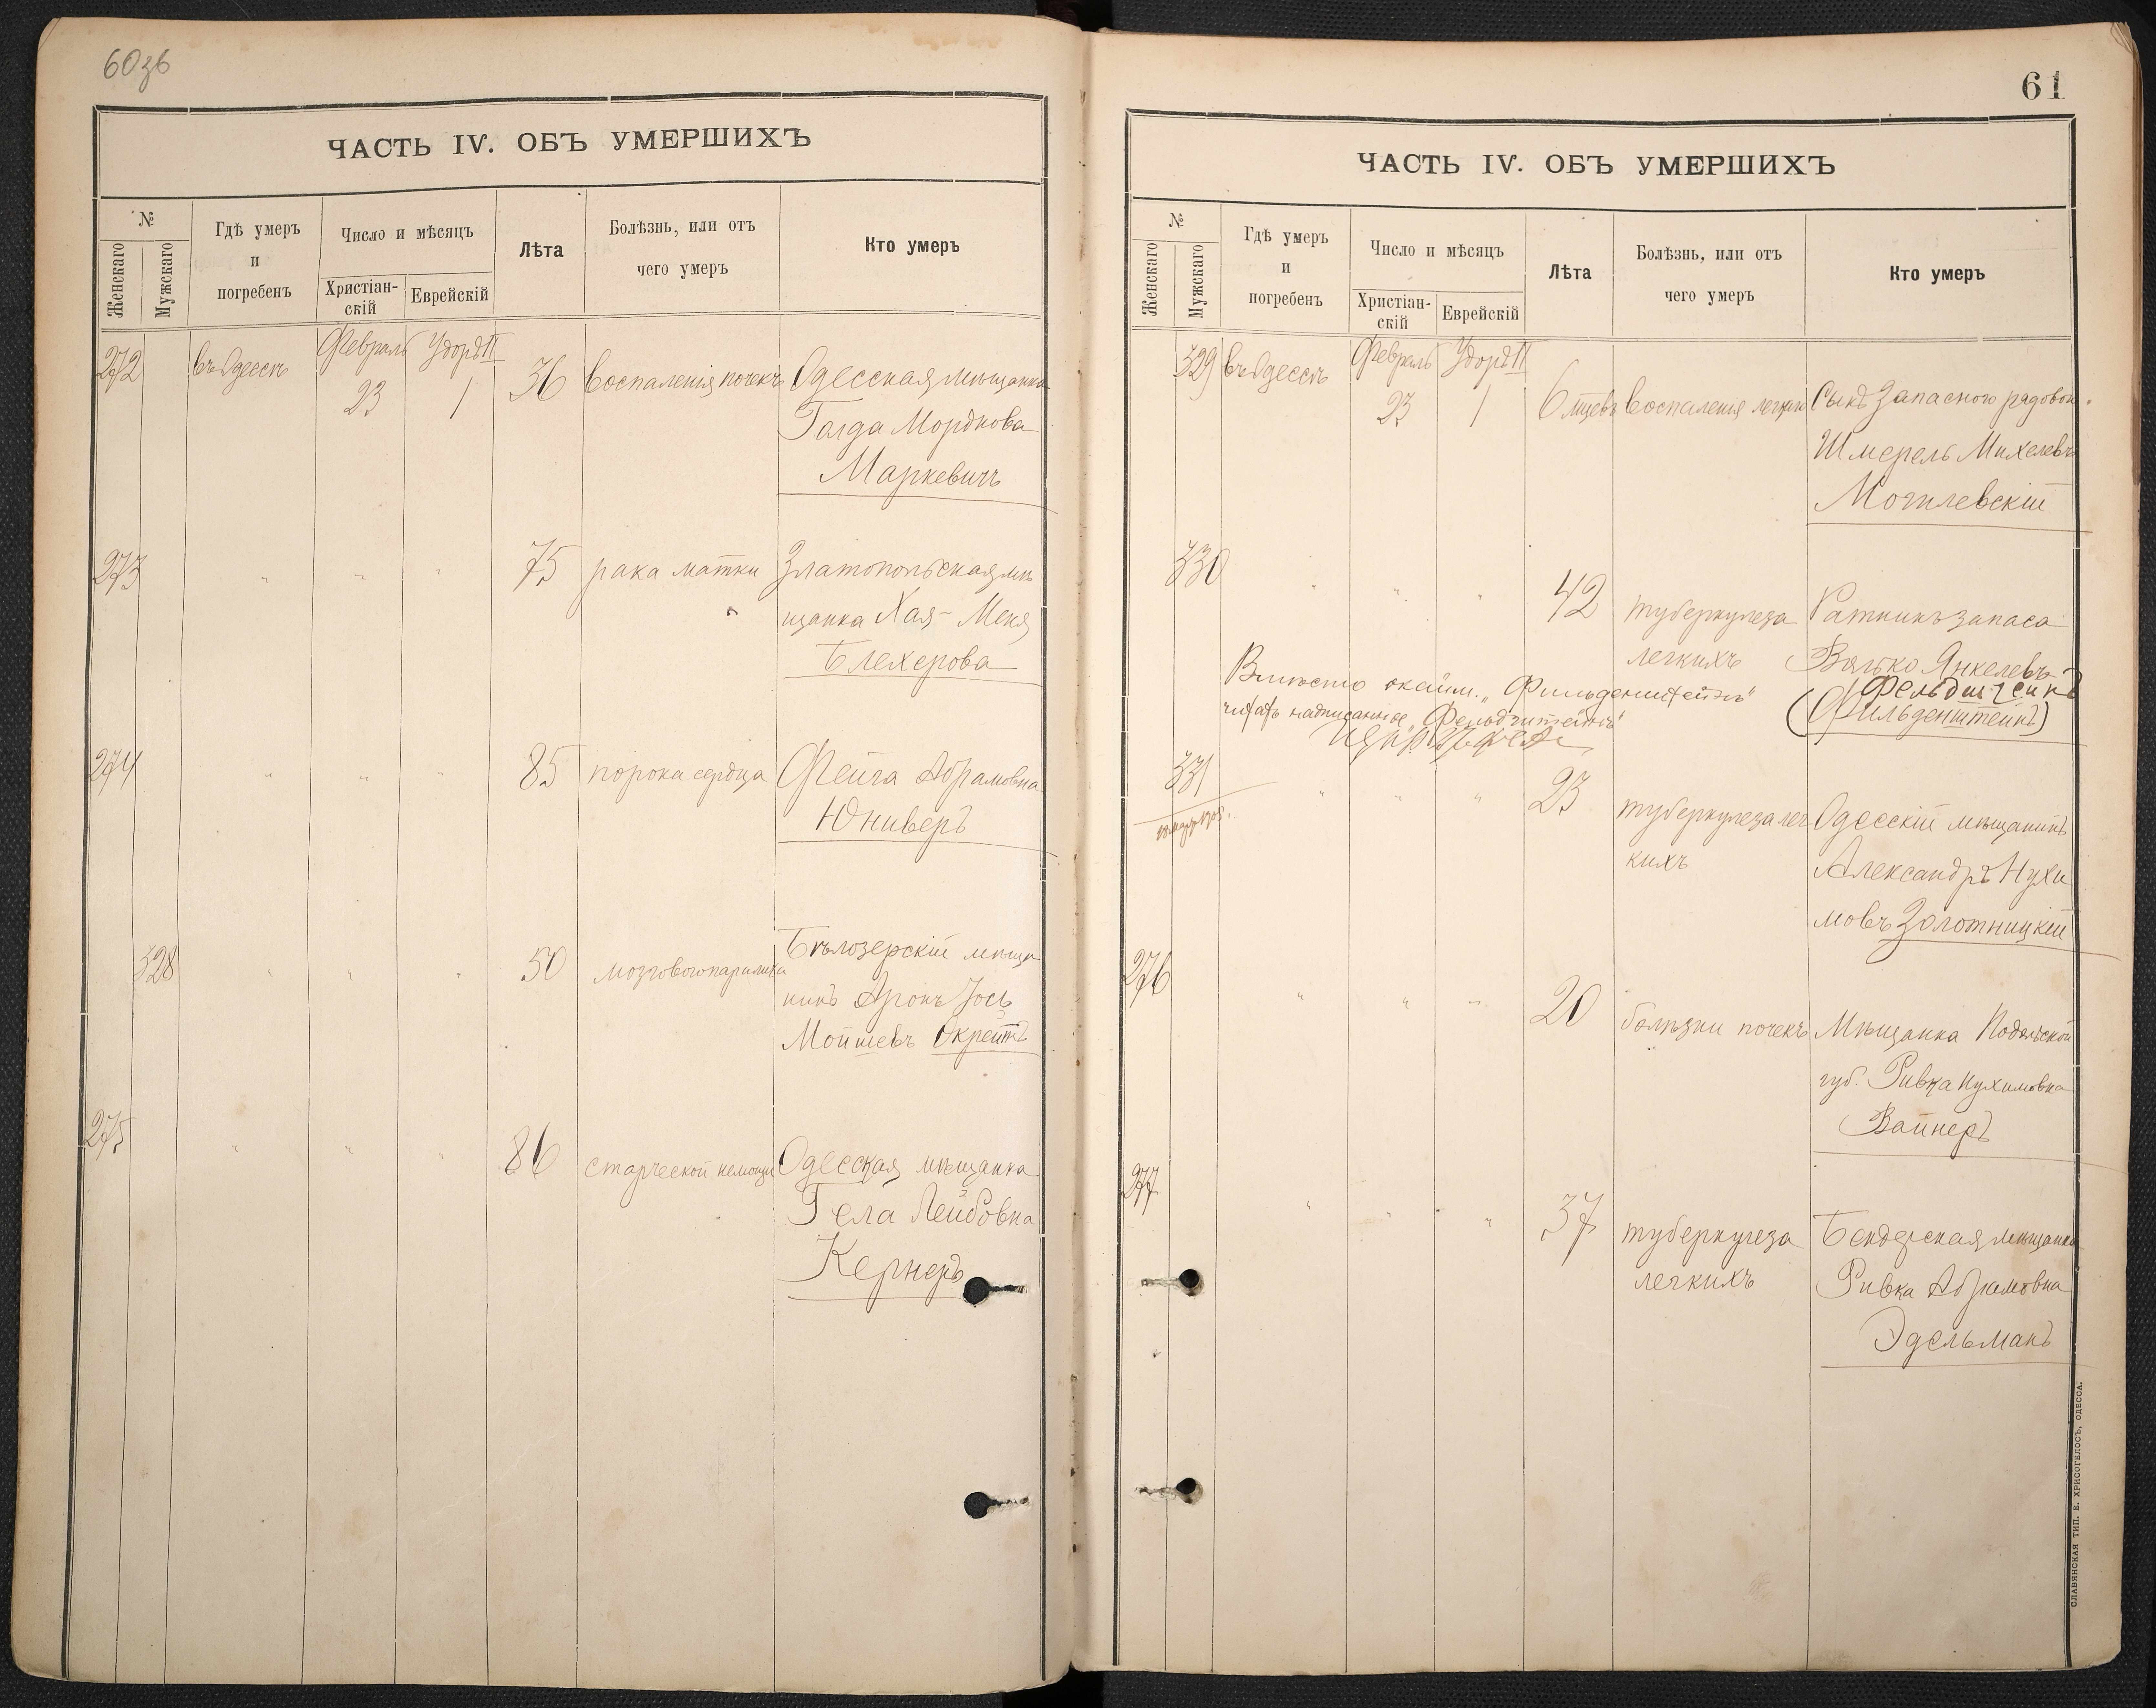 60зб
ЧАСТЬ IV. ОБЪ УМЕРШИХЪ
№
Женскаго
Мужскаго
Гдѣ умеръ
и
погребенъ
Число и мѣсяцъ
Христіан-
скій
Еврейскій
Лѣта
Болѣзнь, или отъ
чего умеръ
Кто умеръ
272 въ Одессѣ Февраль 23 1 36 воспаленія почекъ Одесская мѣщанка
Мордкова
Маркевичъ
273 " " " 75 рака матки Златопольская мѣ
щанка Хая-Меня
Блехерова
274 " " " 85 порока сердца Фейга Абрамовна
Юниверъ
328 " " " 50 мозгового паралича Бѣлозерскій мѣща
нинъ Аронъ Іось
Мойшевъ Окрейтъ
275 " " " 86 старческой немощи Одесская мѣщанка
Гела Лейбовна
Кернеръ
61
ЧАСТЬ IV. ОБЪ УМЕРШИХЪ
№
Женскаго
Мужскаго
Гдѣ умеръ
и
погребенъ
Число и мѣсяцъ
Христіан-
скій
Еврейскій
Лѣта
Болѣзнь, или отъ
чего умеръ
Кто умеръ
329 въ Одессѣ Февраль 23 1 6 мцевъ воспаленія легкихъ Сынъ запасного рядовог.
Шмерель Михелевъ
Могилевскій
330 " " " 42 туберкулеза Ратникъ запаса
легкихъ Янкелевъ
Вмѣсто окайм. „Фильденштейнъ"
читать надписанное
(Фильденштейнъ)
331 " " " 23 туберкулеза лег Одесскій мѣщанинъ
кихъ Александръ Нухи
мовъ Золотницкій
276 " " " 20 болѣзни почекъ Мѣщанка Подольской
губ. Ривка Нухимовна
Вайнеръ
277 " " " 37 туберкулеза Бендерская мѣщанка
легкихъ Ривка Абрамовна
Эдельманъ
СЛАВЯНСКАЯ ТИП. Е. ХРИСОГЕЛОСЪ, ОДЕССА.